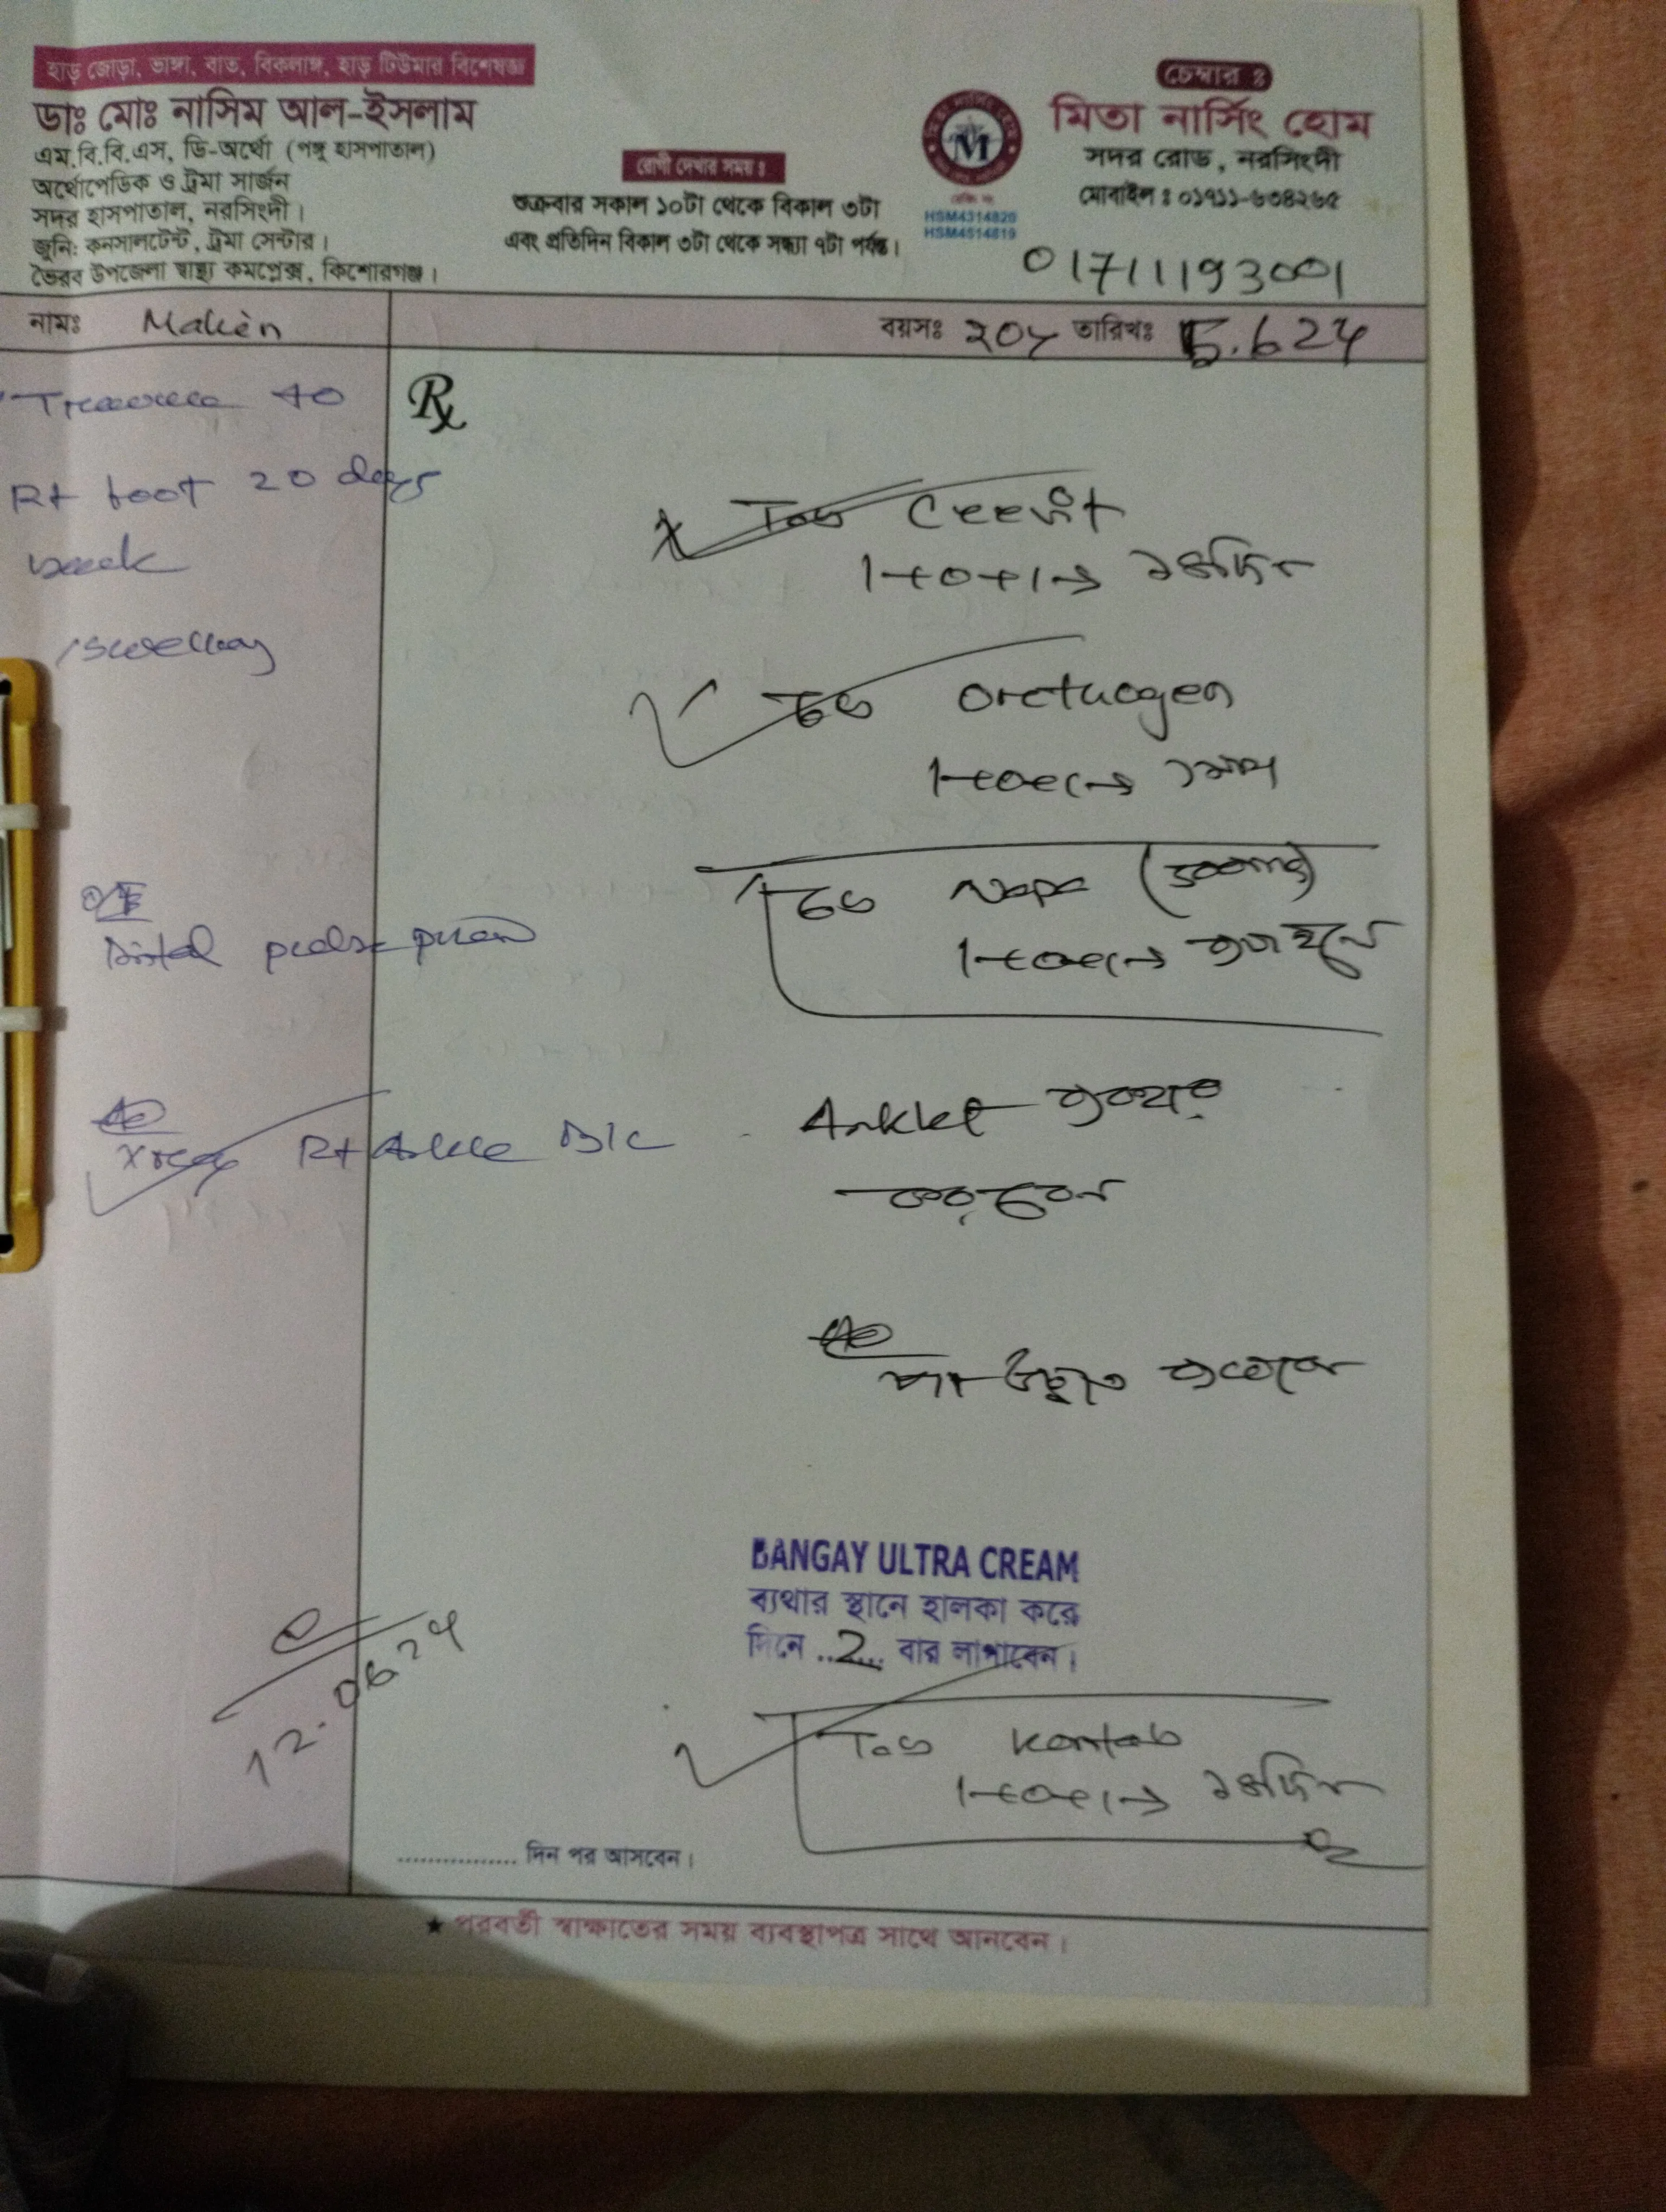 হাড় জোড়া, ভাঙ্গা, বাত, বিকলাঙ্গ, হাড় টিউমার বিশেষজ্ঞ
ডাঃ মোঃ নাসিম আল-ইসলাম
এম.বি.বি.এস, ডি-অর্থো (পঙ্গু হাসপাতাল)
অর্থোপেডিক ও ট্রমা সার্জন
সদর হাসপাতাল, নরসিংদী।
জুনি: কনসালটেন্ট, ট্রমা সেন্টার।
ভৈরব উপজেলা স্বাস্থ্য কমপ্লেক্স, কিশোরগঞ্জ।
রোগী দেখার সময় ঃ
শুক্রবার সকাল ১০টা থেকে বিকাল ৩টা
এবং প্রতিদিন বিকাল ৩টা থেকে সন্ধ্যা ৭টা পর্যন্ত।
M
HSM4314820
HSM4514819
চেম্বার ঃ
মিতা নার্সিং হোম
সদর রোড, নরসিংদী
মোবাইল ঃ ০১৭১১-৬৩৪২৬৫
01711193001
নামঃ
বয়সঃ 20y তারিখঃ 5.624
to
Rt foot 20 days
back
swelling
O/E
Distal pulse
Xray Rt Ankle B/V
12.06.24
Rx
Tab Ceevit
1+0+1→ ১৪দিন
Tab Orthogen
1+0+1→ ১মাস
Tab Napa (500mg)
1+0+1→
Anklet ব্যবহার
করবেন
পা উঁচু
BANGAY ULTRA CREAM
ব্যথার স্থানে হালকা করে
দিনে ..2... বার লাগাবেন।
Tab
1+0+1→ ১৪দিন
................ দিন পর আসবেন।
★ পরবর্তী স্বাক্ষাতের সময় ব্যবস্থাপত্র সাথে আনবেন।